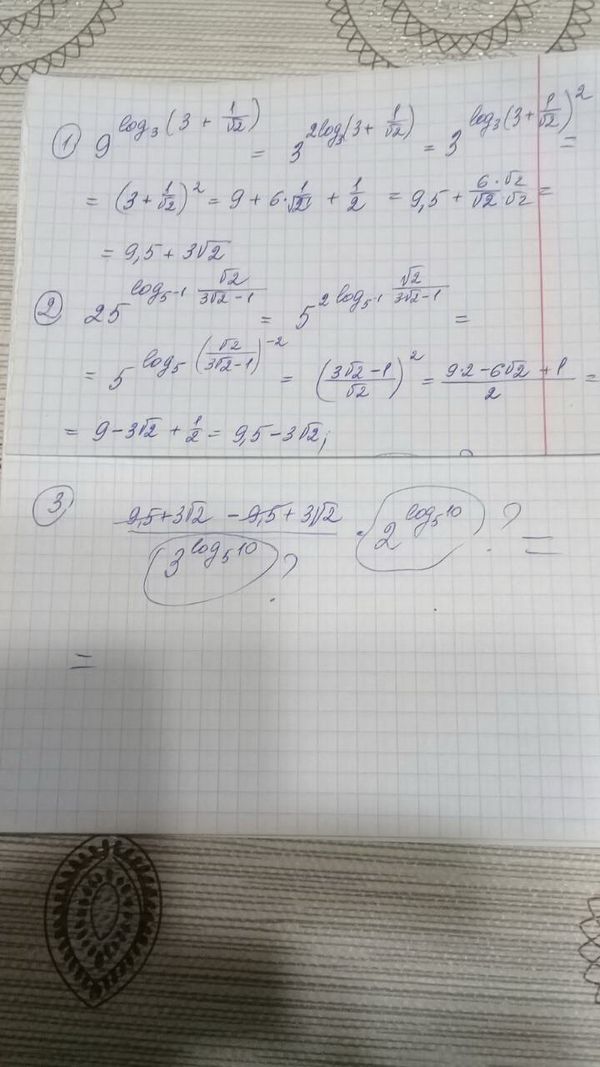 1) 9^(log₃(3 + 1/√2)) = 3^(2log₃(3 + 1/√2)) = 3^(log₃(3 + 1/√2)²) =
= (3 + 1/√2)² = 9 + 6·1/√2 + 1/2 = 9,5 + 6·√2/√2·√2 =
= 9,5 + 3√2
2) 25^(log₅₋₁ √2/3√2-1) = 5^(2log₅₋₁ √2/3√2-1) =
= 5^(log₅(√2/3√2-1)⁻²) = (3√2-1/√2)² = 9·2-6√2+1/2 =
= 9-3√2 + 1/2 = 9,5-3√2;
3) 9,5+3√2 - 9,5+3√2/3^(log₅10) ? · 2^(log₅10) ? =
=